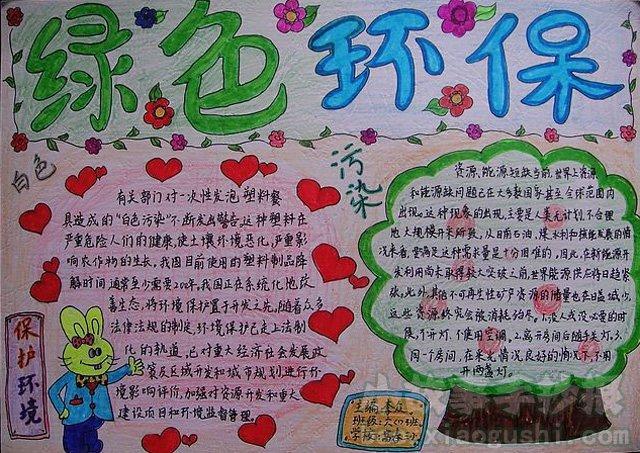 绿色环保
白色
污染
有关部门对一次性发泡塑料餐
具造成的"白色污染"不断发出警告,这种塑料在
严重危险人们的健康,使土壤环境恶化,严重影
响农作物的生长,我国目前使用的塑料制品降
解时间通常至少需要200年,我国正在系统化地改
善生态,将环境保护置于开发之先,随着众多
法律法规的制定,环境保护已走上法制
化的轨道,已对重大经济社会发展政
策及区域开发和城市规划进行环
境影响评价,加强对资源开发和重大
建设项目和环境监督管理。
资源、能源短缺当前,世界上资源
和能源缺问题已在大多数国家甚至全球范围内
出现。这种现象的出现,主要是人类无计划、不合理
地大规模开采所致。从目前石油、煤、水利和核能发展的情
况来看,要满足这种需求量是十分困难的,因此,在新能源开
发利用尚未取得较大突破之前,世界能源供应将日趋紧
张。此外,其他不可再生性矿产资源的储量也在日益减少,
这些资源终究会被消耗殆尽。1、没人或没必要的时
候,不开灯、不使用空调。2、离开房间后随手关灯。3、
同一个房间,在采光情况良好的情况下,不用
开两盏灯。
保护环境
主编:
班级:六(四)班
学校:
xiaogushi.com